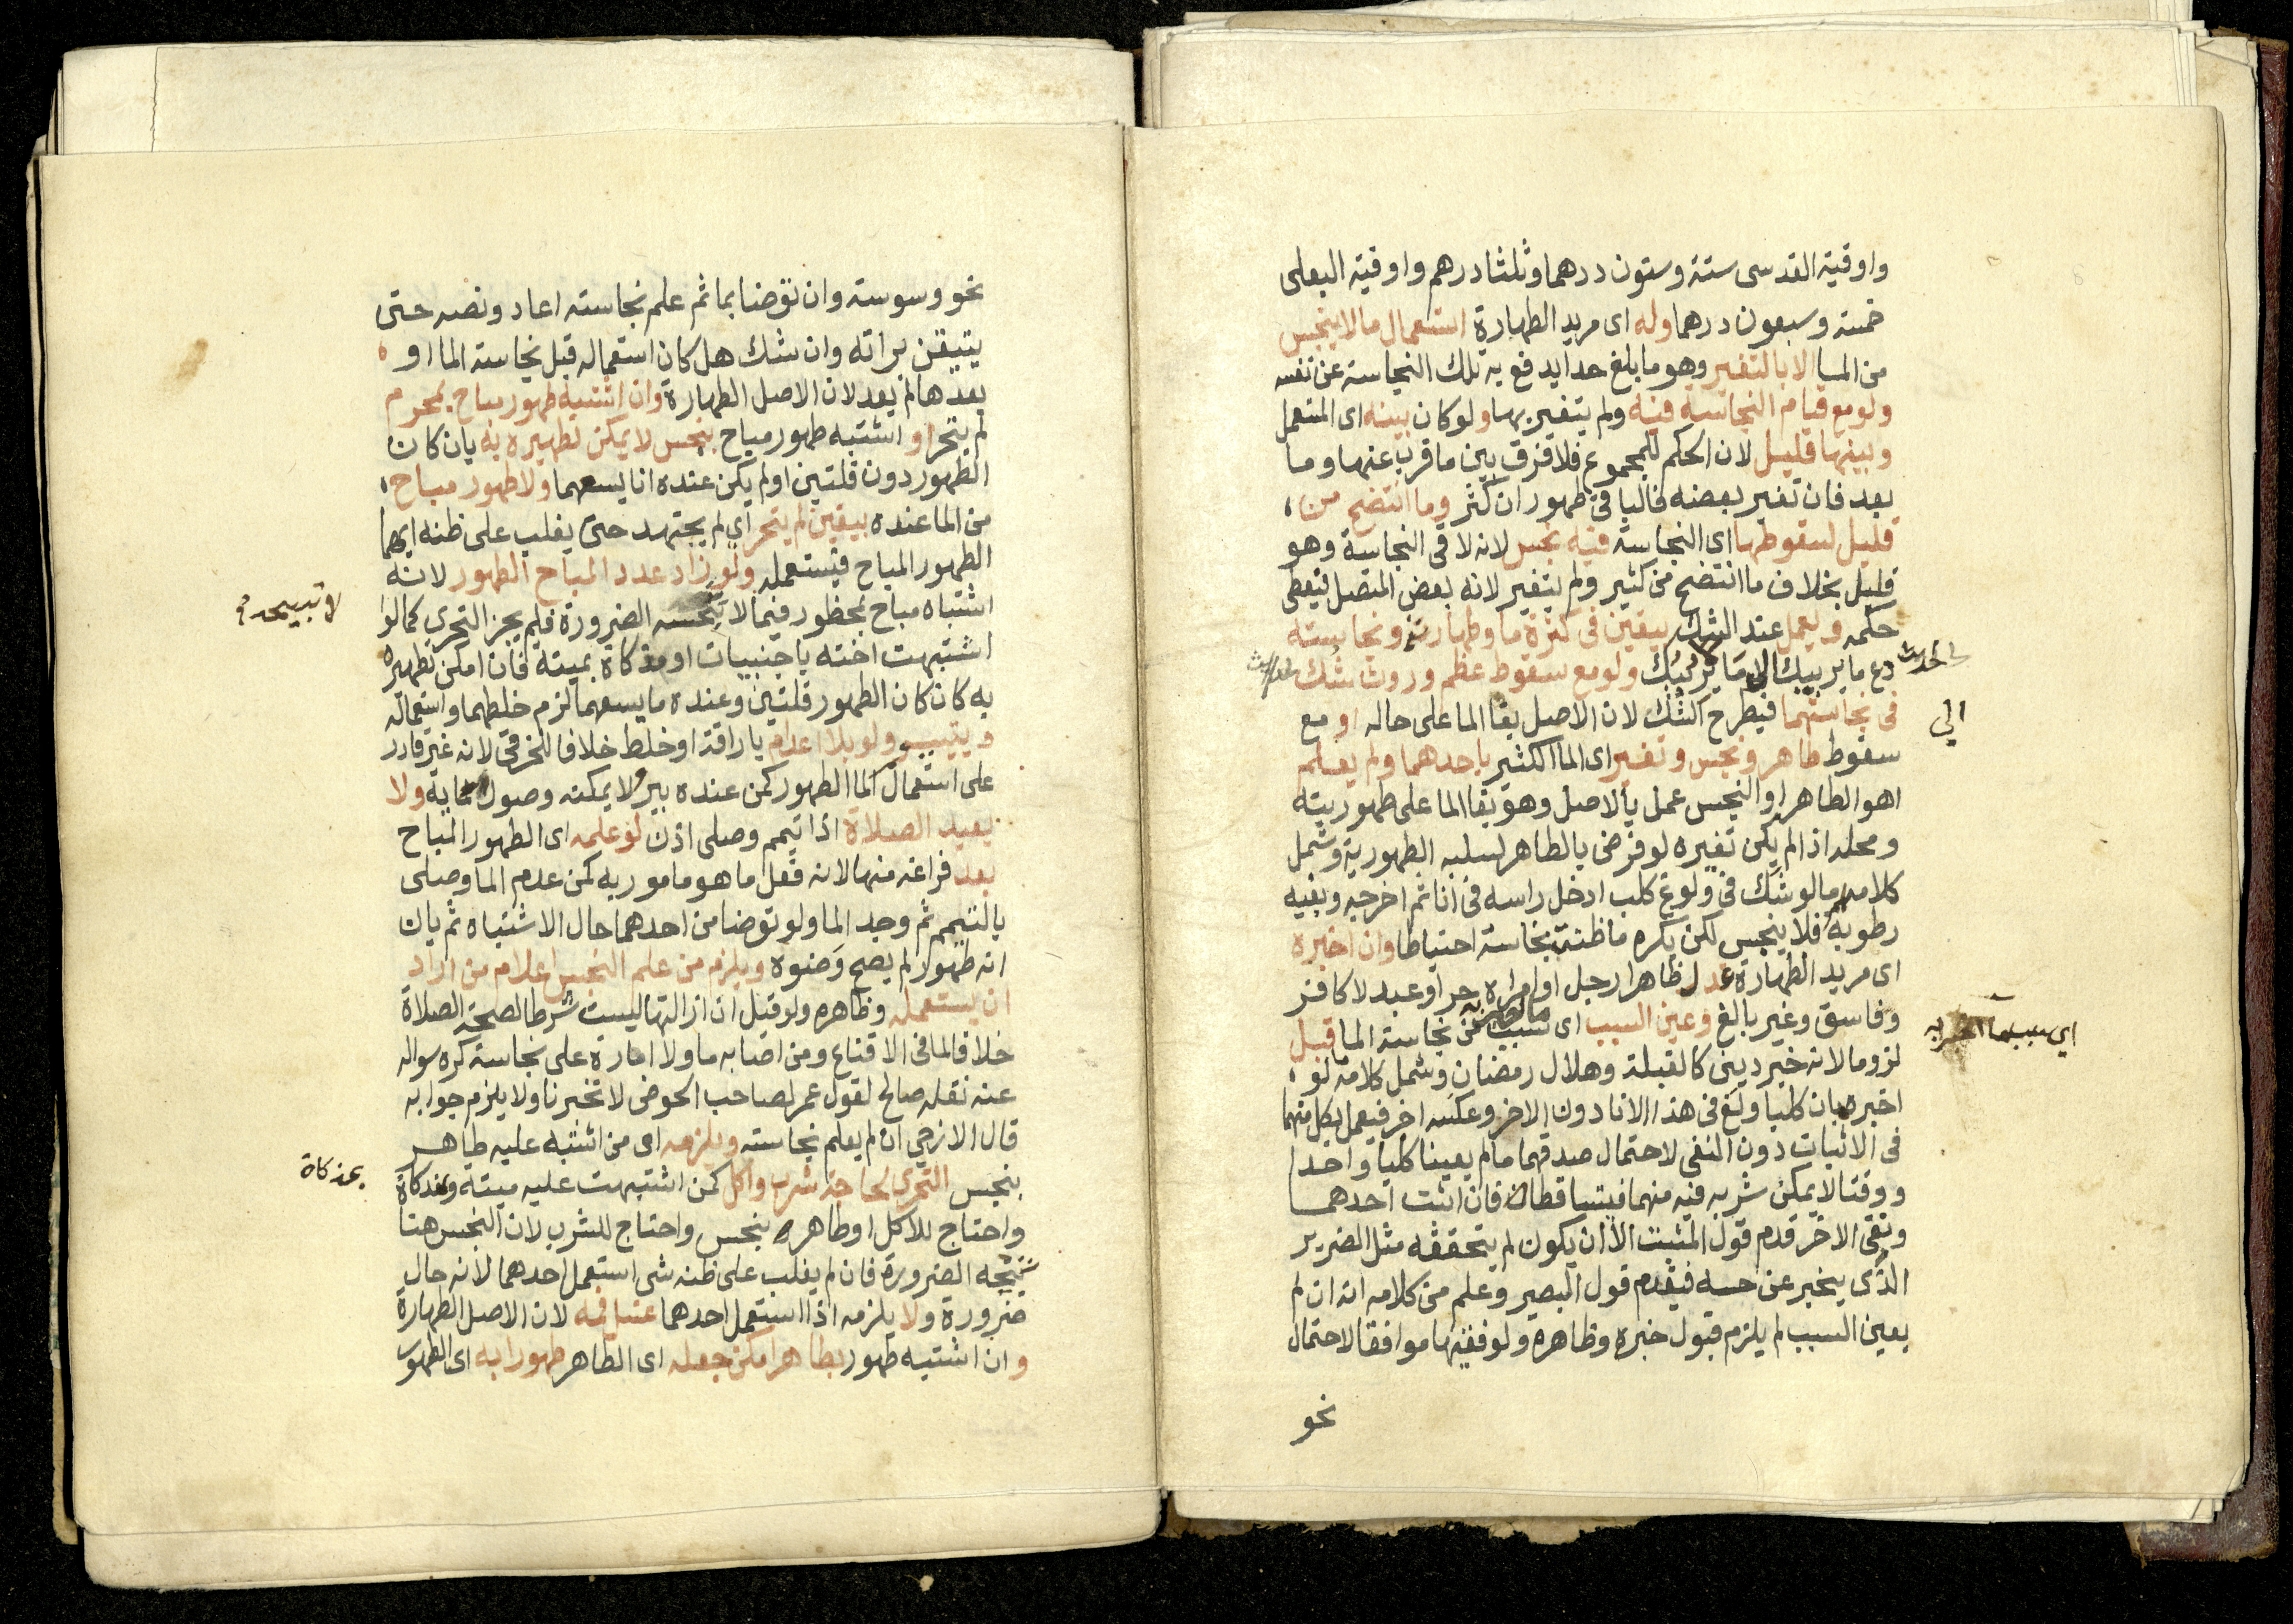 واوقية القدسى ستة وستون درهما وثلثا درهم واوقية البعلى
خمسة وسبعون درهما وله اى مريد الطهارة استعمال ما لا ينجس
من الما الا بالتغير وهو ما بلغ حدا يدفع به تلك النجاسة عن نفسه
ولو مع قيام النجاسة فيه ولم يتغير بها ولو كان بينه اى المستعمل
وبينها قليل لان الحكم للمجموع فلا فرق بين ما قرب عنها وما
بعد فان تغير بعضه فالباقى طهور ان كثر وما انتضح من
قليل لسقوطها اى النجاسة فيه نجس لانه لاقى النجاسة وهو
قليل بخلاف ما انتضح من كثير ولم يتغير لانه بعض المتصل فيعطى
حكمه ويعمل عند الشك بيقين فى كثرة ما وطهارته ونجاسته
لحديث
دع ما يريبك الى ما لا يريبك ولو مع سقوط عظم وروث شك
الي
فى نجاستهما فيطرح الشك لان الاصل بقا الما على حاله او مع
سقوط طاهر ونجس وتغير اى الما الكثير باحدهما ولم يعلم
اهو الطاهر او النجس عمل بالاصل وهو بقا الما على طهوريته
ومحله اذا لم يكن تغيره لو فرض بالطاهر لسلبه الطهورية وشمل
كلامه ما لو شك فى ولوغ كلب ادخل راسه فى انا ثم اخرجه وبفيه
رطوبة فلا ينجس لكن يكره ما ظنت نجاسته احتياطا وان اخبره
اى مريد الطهارة عدل ظاهرا رجل او امراة حر او عبد لا كافر
وفاسق وغير بالغ وعين السبب اى سبب نجاسة الما قبل
اي سبب ما اخبر به
لزوما لانه خبر دينى كالقبلة وهلال رمضان وشمل كلامه لو
اخبره بان كلبا ولغ فى هذا الانا دون الاخر وعكسه اخر فيعمل بكل منهما
فى الاثبات دون النفى لاحتمال صدقهما ما لم يعينا كلبا واحدا
ووقتا لا يمكن شربه فيه منهما فيتساقطان فان اثبت احدهما
ونفى الاخر قدم قول المثبت الا ان يكون لم يتحققه مثل الضرير
الذى يخبر عن حسه فيقدم قول البصير وعلم من كلامه انه ان لم
يعين السبب لم يلزم قبول خبره وظاهره ولو فقيها موافقا لاحتمال
نحو
نحو وسوسة وان توضا بما ثم علم نجاسته اعاد ونصه حتى
يتيقن براته وان شك هل كان استعماله قبل نجاسة الما او
بعدها لم يعد لان الاصل الطهارة وان اشتبه طهور مباح بمحرم
لم يتحر او اشتبه طهور مباح بنجس لا يمكن تطهيره به بان كان
الطهور دون قلتين او لم يكن عنده انا يسعهما ولا طهور مباح
من الما عنده بيقين لم يتحر اي لم يجتهد حتى يغلب على ظنه ايهما
الطهور المباح فيستعمله ولو زاد عدد المباح الطهور لانه
اشتباه مباح بمحظور فيما لا الضرورة فلم يجز التحرى كما لو
لا تبيحه
اشتبهت اخته باجنبيات او مذكاة بميتة فان امكن تطهيره
به كان كان الطهور قلتين وعنده ما يسعهما لزم خلطهما واستعماله
ويتيمم ولو بلا اعدام باراقة او خلط خلافا للخرقى لانه غير قادر
على استعمال الما الطهور كمن عنده بير لا يمكنه وصول مايه ولا
يعيد الصلاة اذا تيمم وصلى اذن لو علمه اى الطهور المباح
بعد فراغه منها لانه فعل ما هو مامور به كمن عدم الما وصلى
بالتيمم ثم وجد الما ولو توضا من احدهما حال الاشتباه ثم بان
انه طهور لم يصح وضوه ويلزم من علم النجس اعلام من اراد
ان يستعمله وظاهره ولو قيل ان ازالتها ليست شرطا لصحة الصلاة
خلافا لما فى الاقناع ومن اصابه ما ولا امارة على نجاسة كره سواله
عنه نقله صالح لقول عمر لصاحب الحوض لا تخبرنا ولا يلزم جوابه
قال الازجي ان لم يعلم نجاسته ويلزمه اى من اشتبه عليه طاهر
بنجس التحرى لحاجة شرب واكل كمن اشتبهت عليه ميتة ومذكاة
بمذكاة
واحتاج للاكل او طاهر بنجس واحتاج للشرب لان النجس هنا
تبيحه الضرورة فان لم يغلب على ظنه شى استعمل احدهما لانه حال
ضرورة ولا يلزمه اذا استعمل احدهما غسل فمه لان الاصل الطهارة
وان اشتبه طهور بطاهر امكن جعله اى الطاهر طهورا به اى الطهور